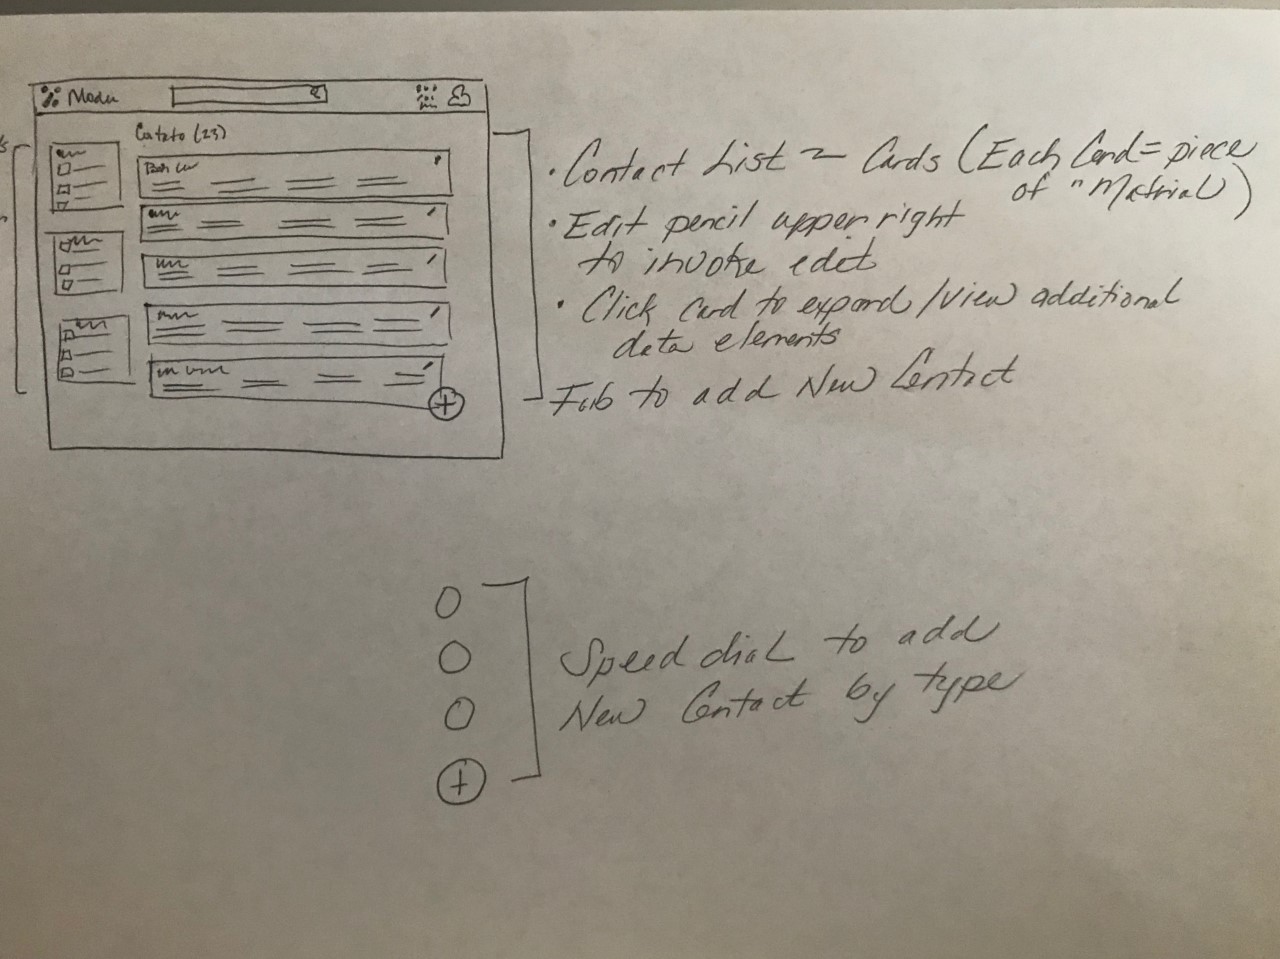 Contact List ~ Cards (Each Card = piece
of "Matrial)
• Edit pencil upper right
to invoke edit
• Click Card to expand/view additional
data elements
Fab to add New Contact
(23)
Speed dial to add
New Contact by type